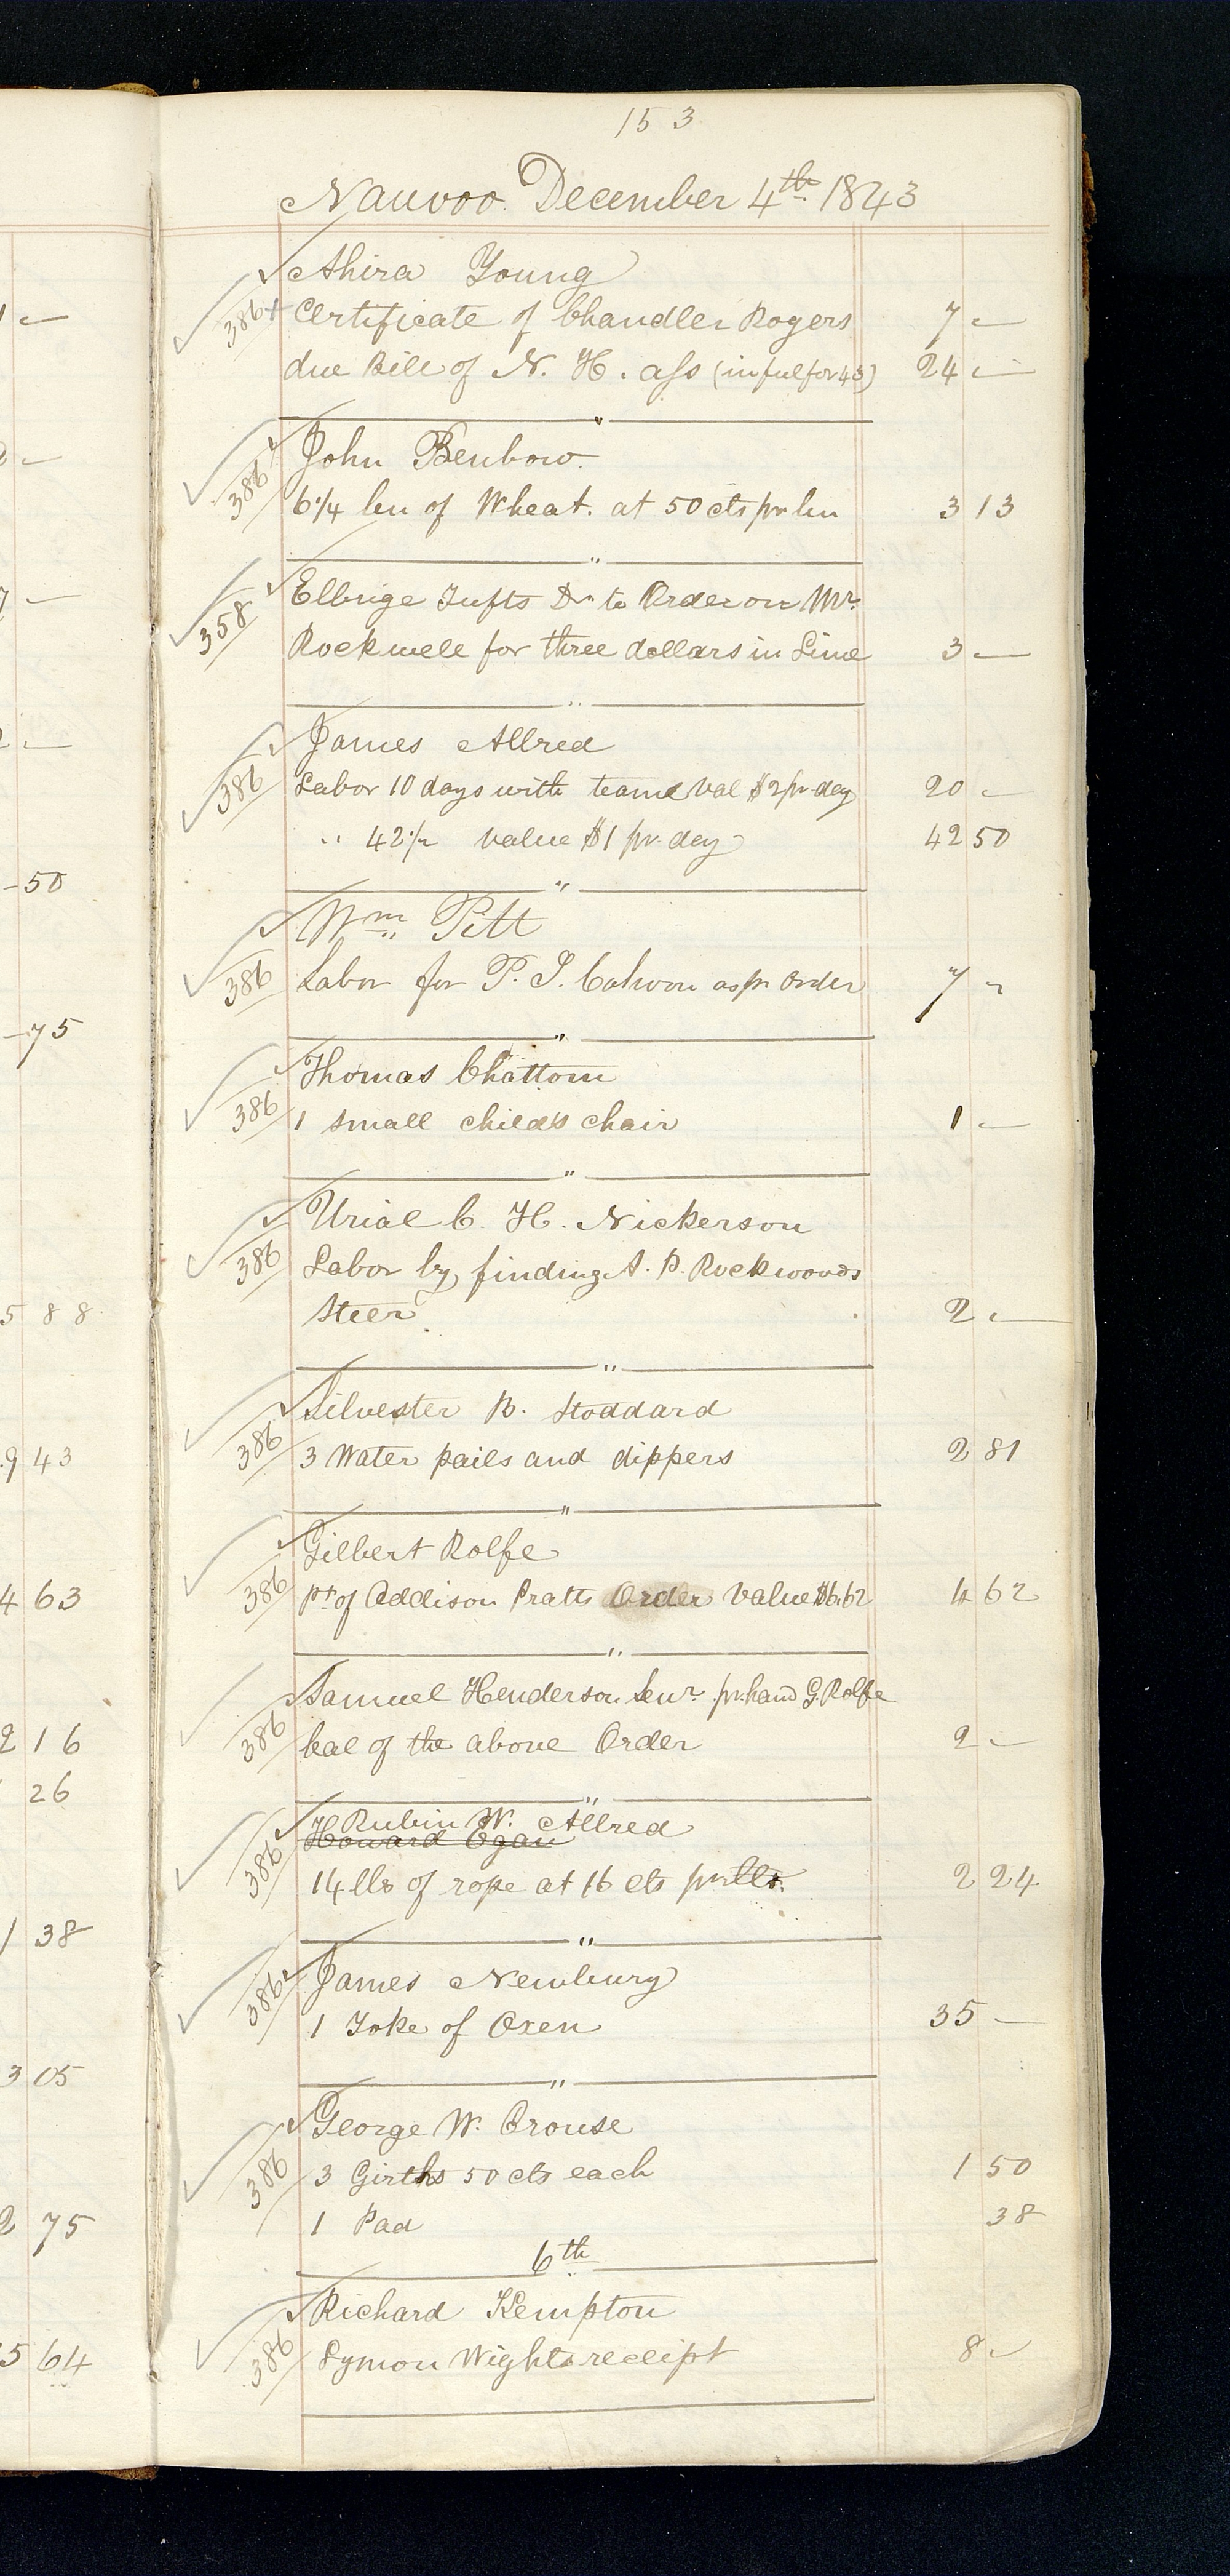 153
Nauvoo December 4th 1843
Ahira Young
386 Certificate of Chandler Rogers 7 —
due Bill of N. H. ass (in full for 43) 24 —
John Benbow
386 6 1/4 bu of Wheat. at 50 cts pr bu 3 13
Elbrige Tufts Dr to Order on Mr.
358 Rockwell for three dollars in Lime 3 —
James Allred
386 Labor 10 days with team val $2 pr day 20 —
" 42 1/2 value $1 pr. day 42 50
Wm Pitt
386 Labor for P. S. Cahoon as pr order 7 "
Thomas Chattom
386 1 small childs chair 1 —
Urial C. H. Nickerson
386 Labor by finding A. P. Rockwoods
Steer 2 —
Silvester B. Stoddard
386 3 Water pails and dippers 2 81
Gilbert Rolfe
386 pt of Addison Pratts Order value $6.62 4 62
Samuel Henderson Senr. pr hand G. Rolfe
386 bal of the above Order 2 —
Rubin W. Allred
Howard Egan
386 14 lbs of rope at 16 cts pr lb. 2 24
James Newbury
386 1 Yoke of Oxen 35 —
George W. Crouse
386 3 Girths 50 cts each 1 50
1 Pad 38
6th
Richard Kempton
386 Lymon Wights receipt 8 —
50
75
5 88
9 43
4 63
2 16
26
1 38
3 05
2 75
5 64